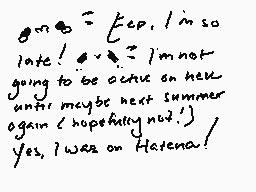 = Eep, I'm so
late! = I'm not
going to be active on here
until maybe next summer
again (hopefully not!)
Yes, I was on Hatena!